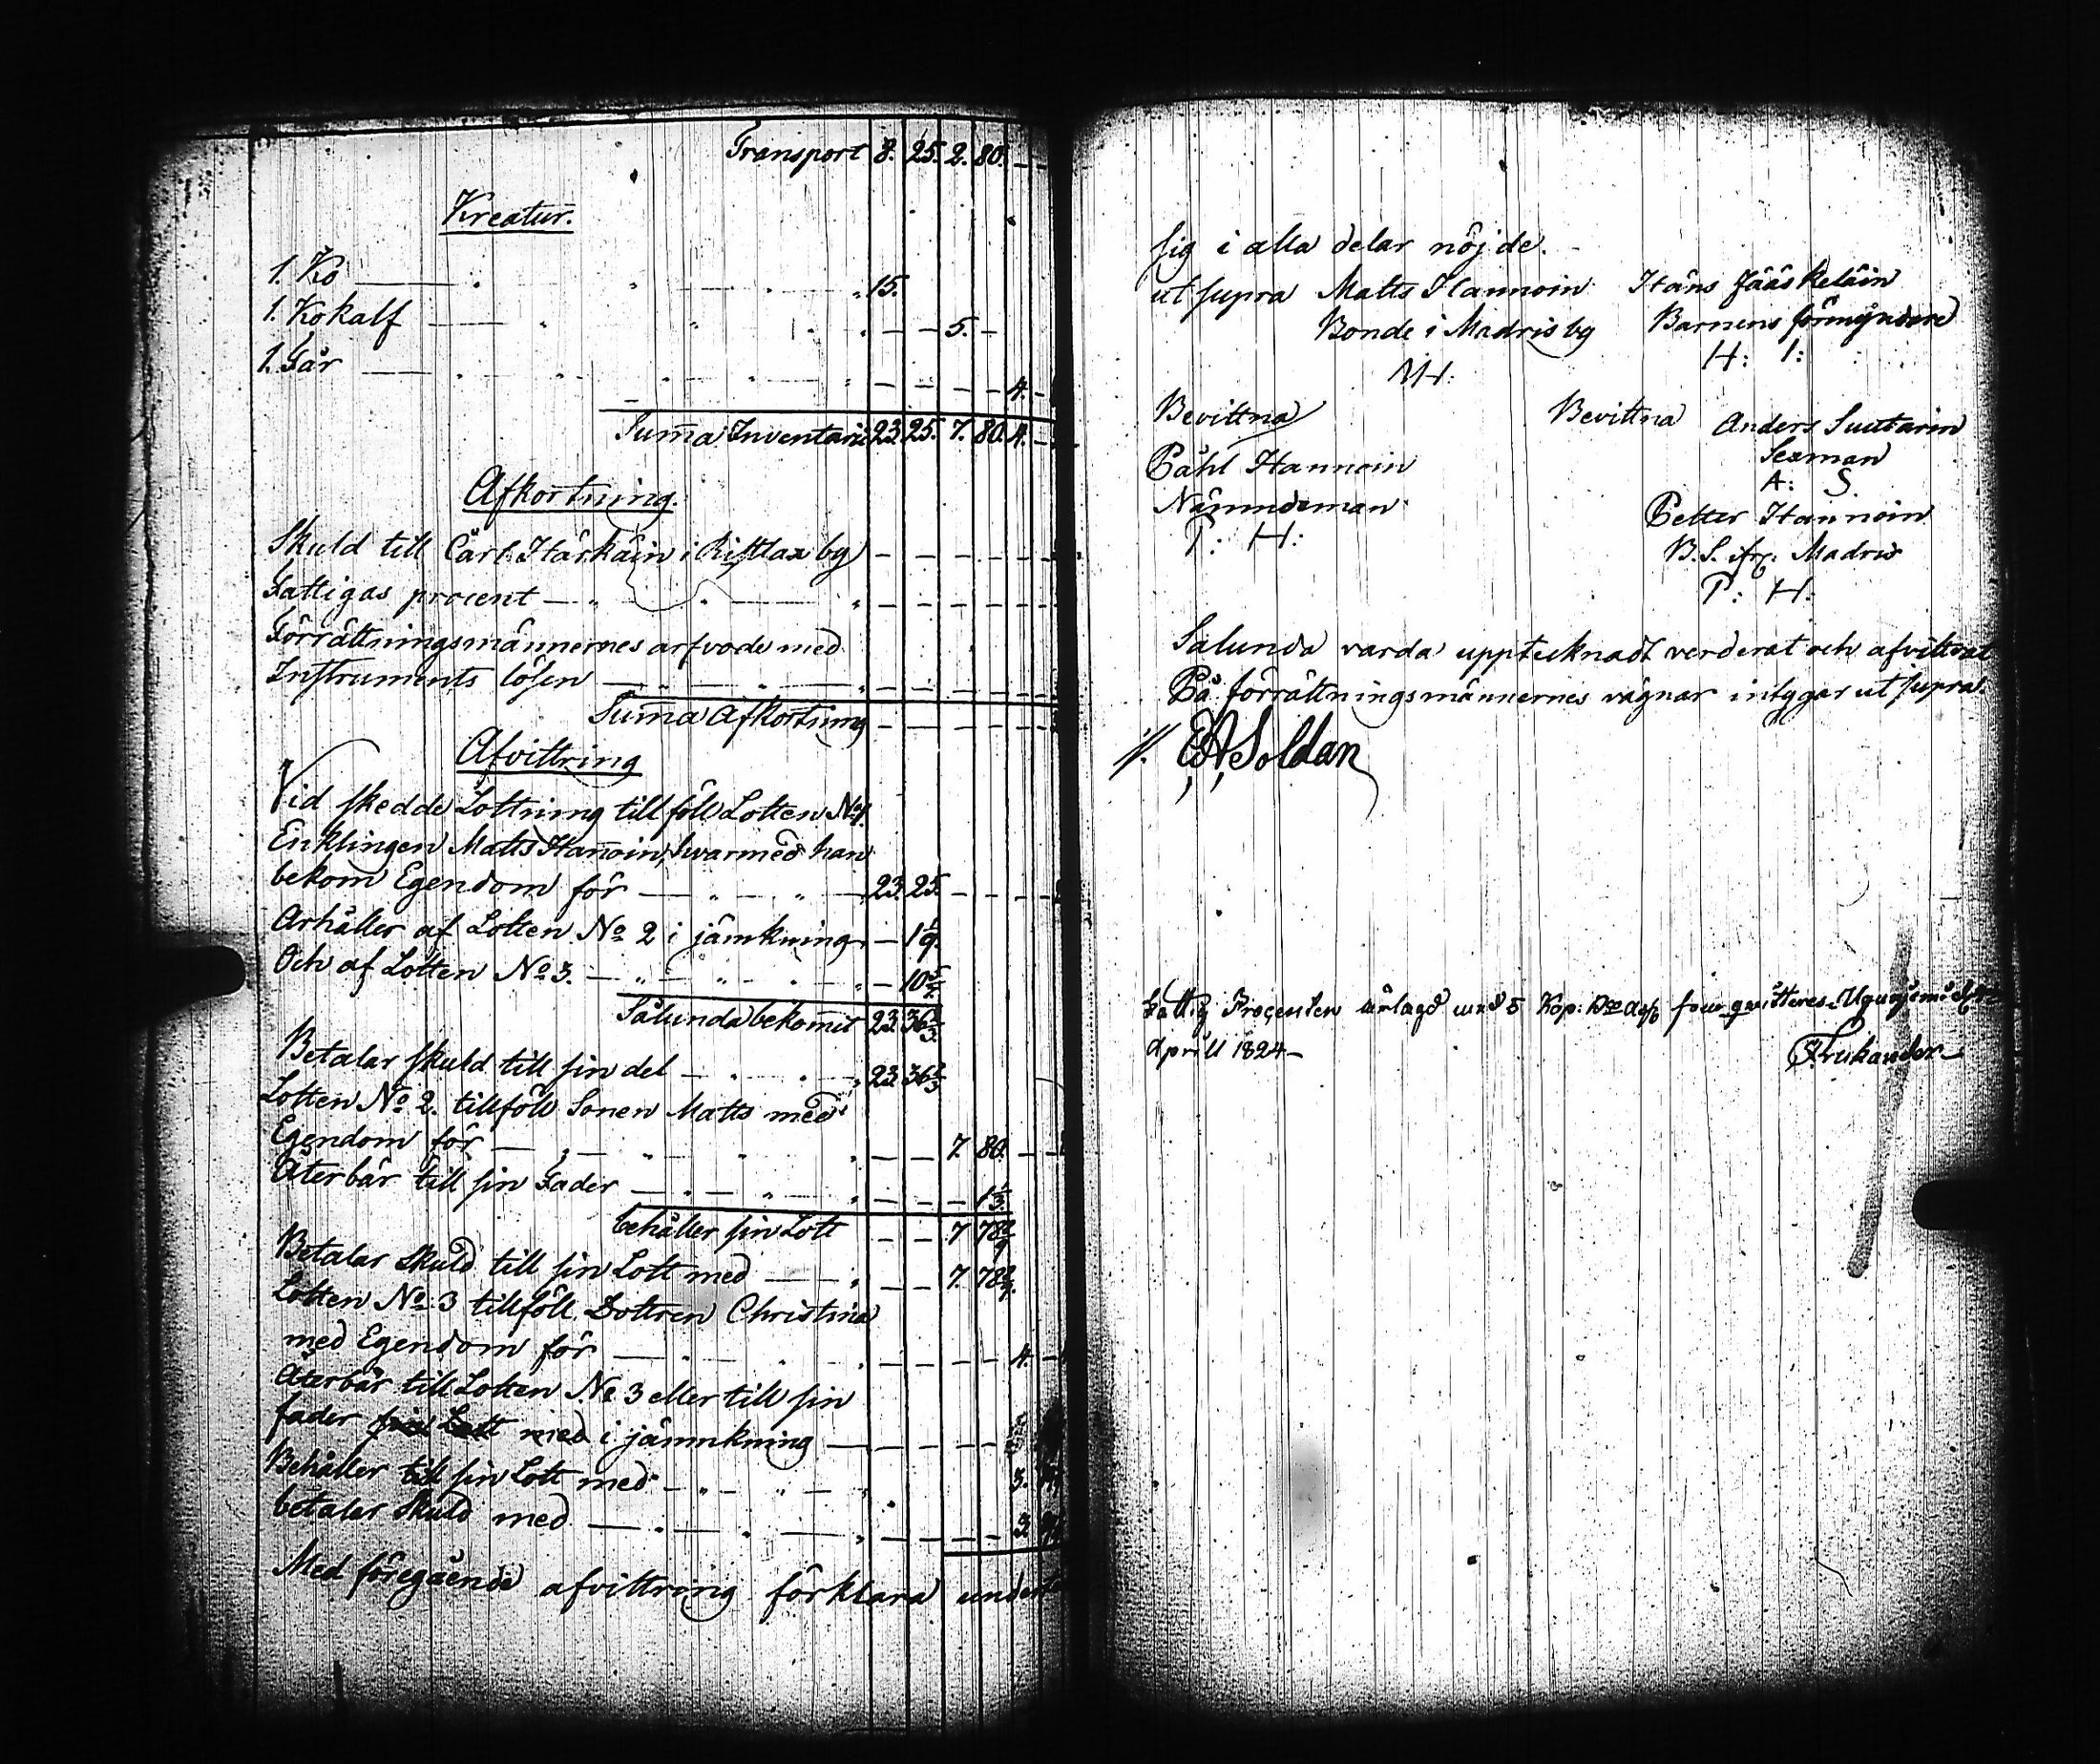 Transport 8. 25. 2. 80. – –
Kreatur.
1. Ko — " " " 15.
1. Kokalf — " " " – – 5. –
1. Får — " " " – – – – 4. –
Sum̄a Inventarie 23. 25. 7. 80. 4. –
Afkortning.
Skuld till Carl Härkäin i Ristlax by – – – – –
Fattigas procent — " " " – – – – –
Förrättningsmännernes arfvode med
Instruments lösen — " " – – – – –
Sum̄a Afkortning – – – –
Afvittring
Vid skedde Lottning tillföll Lotten No 1.
Enklingen Matts Hanoin, hvarmed han
bekom Egendom för — " " 23. 25. – – –
Arhåller af Lotten No 2 i jämkning – 1 1/9.
Och af Lotten No 3. — " " " – 10 5/9.
Sålunda bekom̄it 23. 36 2/3.
Betalar skuld till sin del — " " 23. 36 2/3
Lotten No 2. tillföll Sonen Matts med
Egendom för — " " " – – 7. 80. – –
Återbär till sin Fader — " " – – – 1 1/3.
behåller sin Lott – – 7. 78 8/9
Betalar skuld till sin Lott med — " – – 7. 78 8/9.
Lotten No 3 tillföll Dottren Christina
med Egendom för — " " " – – – – 4. –
Återbär till Lotten No 3 eller till sin
fader sin Lott med i jämnkning — – – – –
Behåller till sin Lott med – " – " – 3.
betalar skuld med — " " — " – – – – 3
Med föregående afvittring förklara
sig i alla delar nöjde.
ut supra Matts Hannoin Häns Jääskeläin
Bonde i Madris by Barnens förmyndare
MH: H: I:
Bevittna Bevittna Anders Suutarin
Påhl Hannoin Sexman
Nämndeman A: S.
P: H: Petter Hannoin
B. S. ifr: Madris
P: H:
Sålunda varda upptecknadt verderat och afvittrat
På förrättningsmännernes vägnar intygar ut supra.
EA Soldan
Fattig Procenten med 5 Kop: som quitteres
April 1824 –